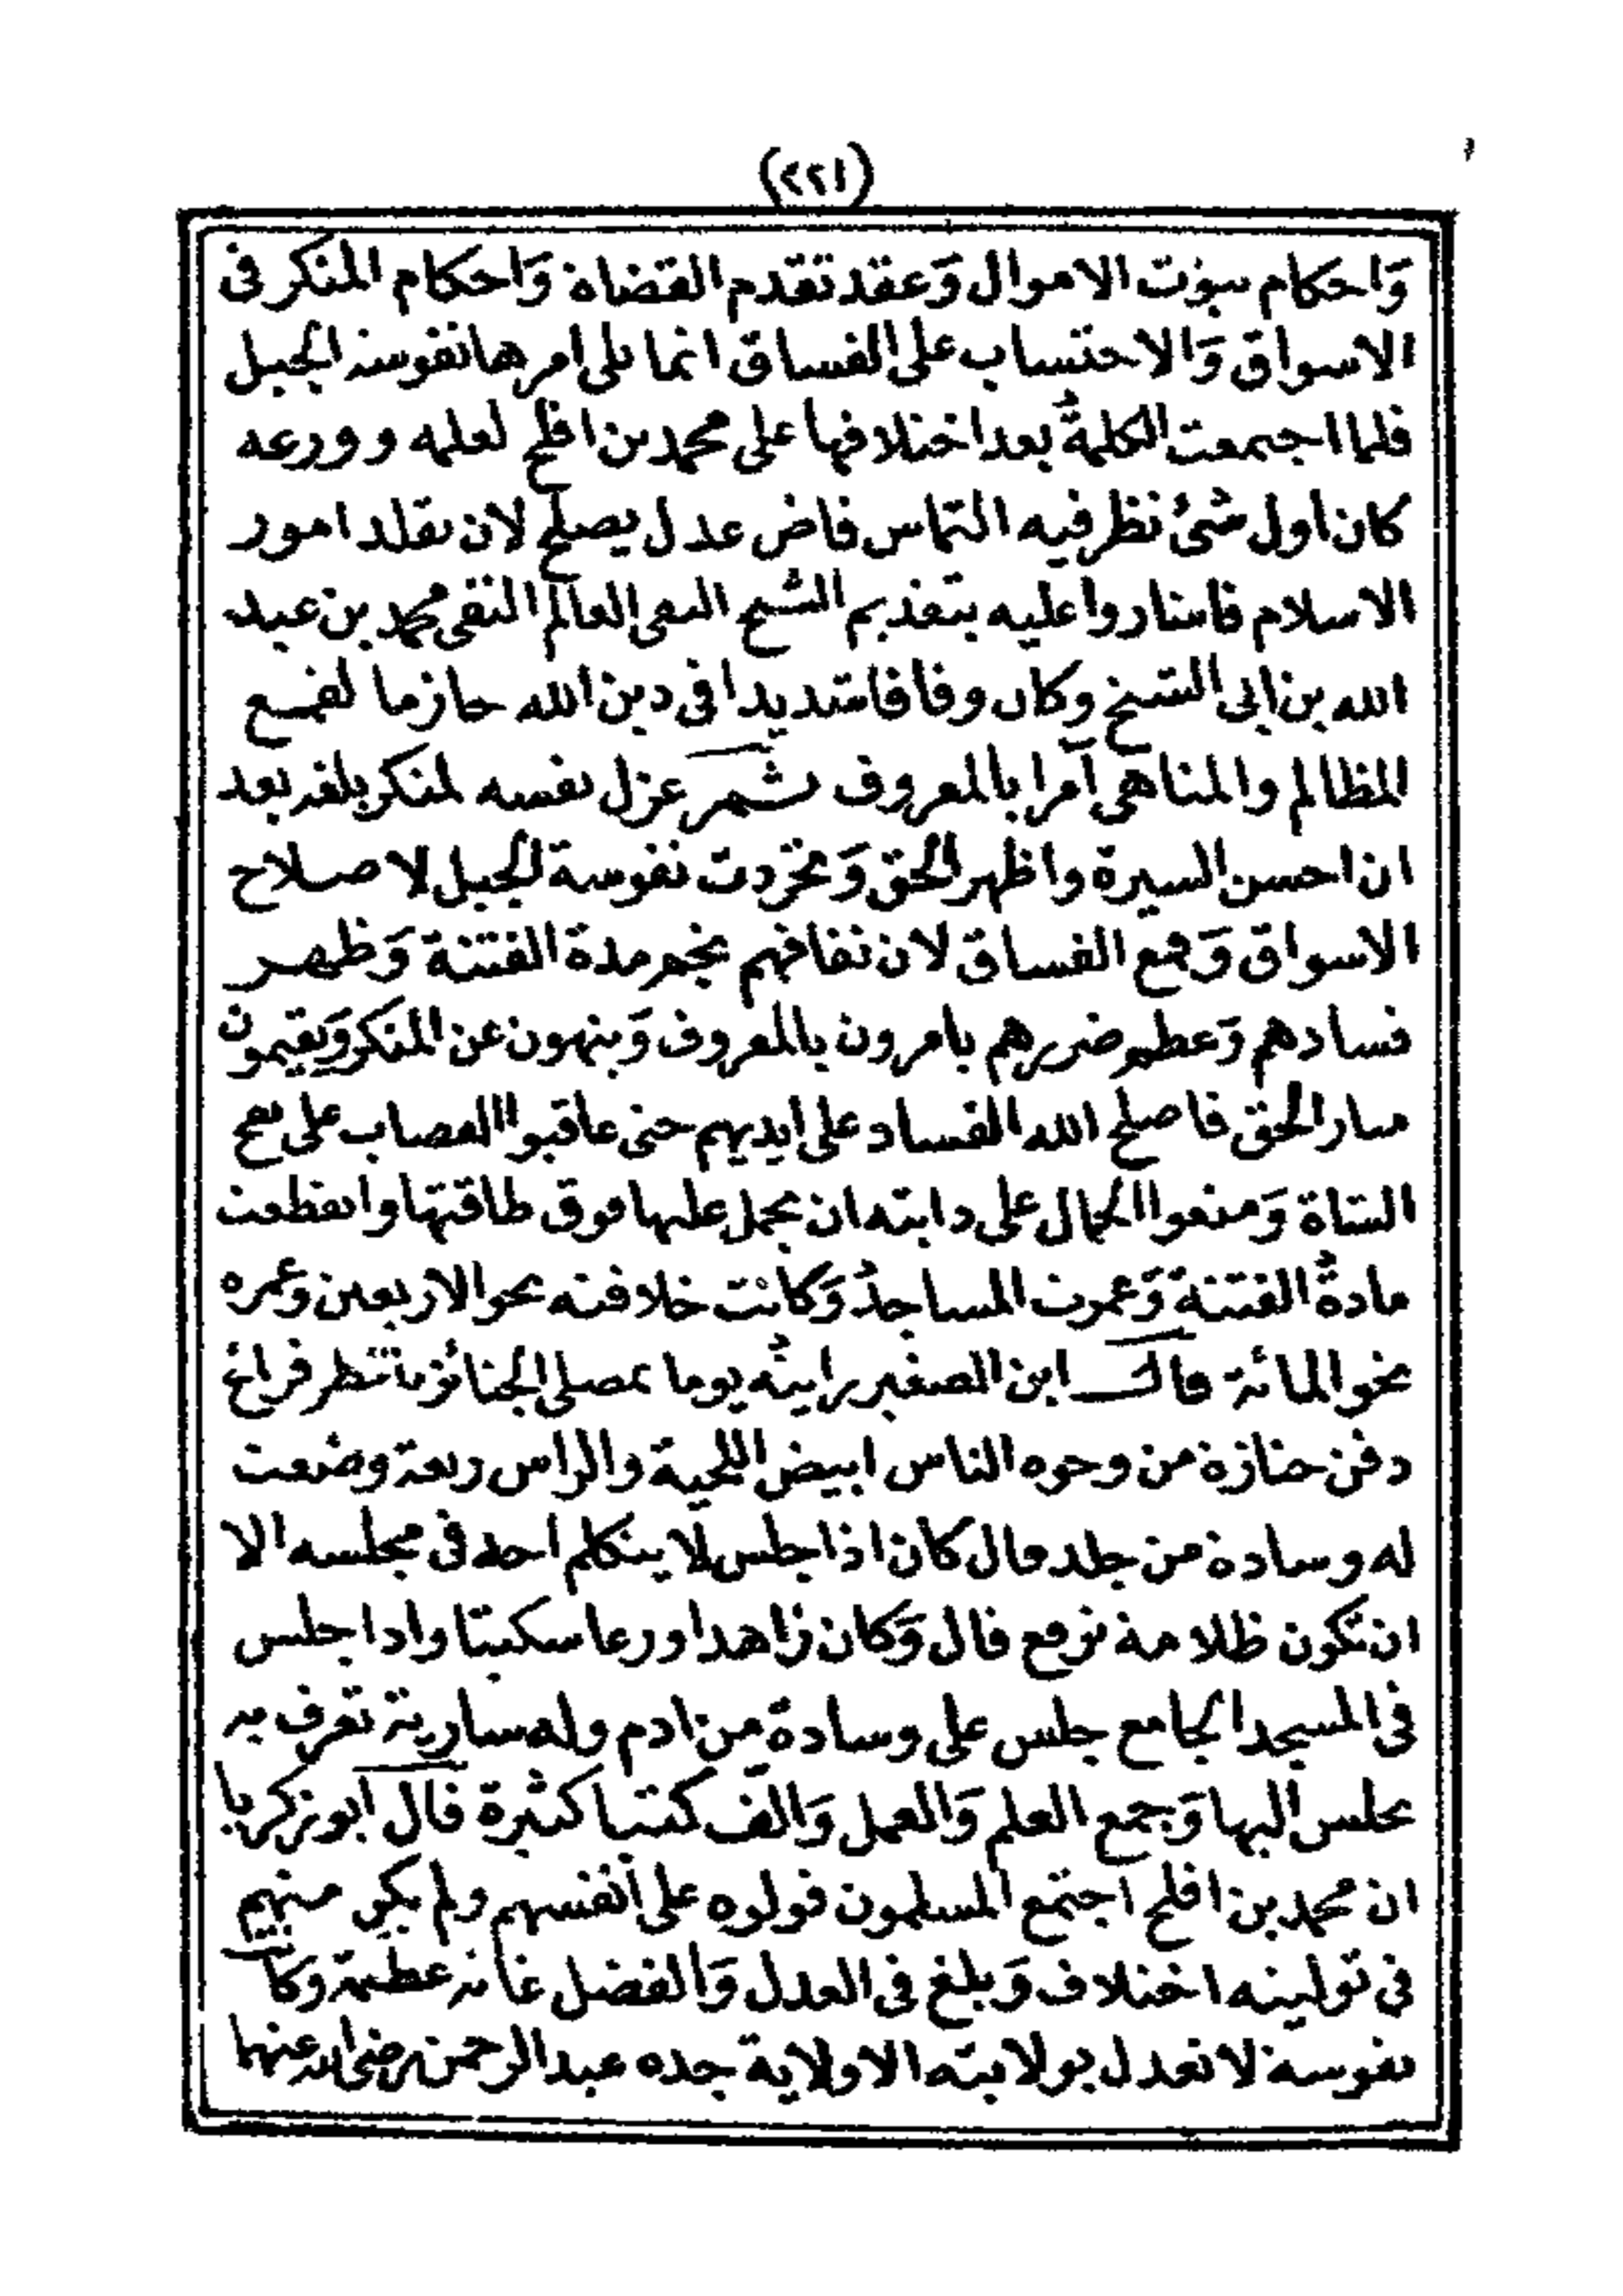 (٢٢١)
وَاحكام بيوت الاموال وَعقد تقدم القضاة وَاحكام المنكر فى
الاسواق وَالاحتساب على الفساق انما يلى امرها نفوسة الجبل
فلما اجتمعت الكلمةُ بعد اختلافها على محمد بن افلح لعلمه وورعه
كان اول شئ نظر فيه التماس قاض عدل يصلح لان يقلد امور
الاسلام فاشاروا عليه بتقديم الشيخ التقى العالم النقى محمد بن عبد
الله بن ابى الشيخ وكان وقافا شديدا فى دين الله حازما لقمع
المظالم والمناهى آمرا بالمعروف ثم عزل نفسه لمنكر بلغه بعد
ان احسن السيرة واظهر الحق وَتجرّدت نفوسة الجبل لاصلاح
الاسواق وَقمع الفساق لان نفاقهم نجم مدة الفتنة وَظهر
فسادهم وَعظم ضررهم يامرون بالمعروف وَينهون عن المنكر وَيقيمون
منار الحق فاصلح الله الفساد على ايديهم حتى عاقبوا القصاب على نفخ
الشاة وَمنعوا الحمال على دابته ان يحمل عليها فوق طاقتها وانقطعت
مادةُ الفتنة وَعمرت المساجدُ وَكانت خلافته نحو الاربعين وعمره
نحو المائة قال ابن الصغير رايتُه يوما بمصلى الجنائز ينتظر فراغ
دفن جنازة من وجوه الناس ابيض اللحية والراس ربعة وضعت
له وسادة من جلد قال كان اذا جلس لا يتكلم احد فى مجلسه الا
ان تكون ظلامة ترفع قال وَكان زاهدا ورعا سكيتا واذا جلس
فى المسجد الجامع جلس على وسادة من ادم وله سارية تعرف به
يجلس اليها وَجمع العلم وَالعمل وَالف كتبا كثيرة قال ابو زكريا
ان محمد بن افلح اجتمع المسلمون فولوه على انفسهم ولم يكن منهم
فى توليته اختلاف وَبلغ فى العدل وَالفضل غاية عظيمة وكانت
نفوسة لا تعدل بولايته الا ولاية جده عبد الرحمن رضى الله عنها